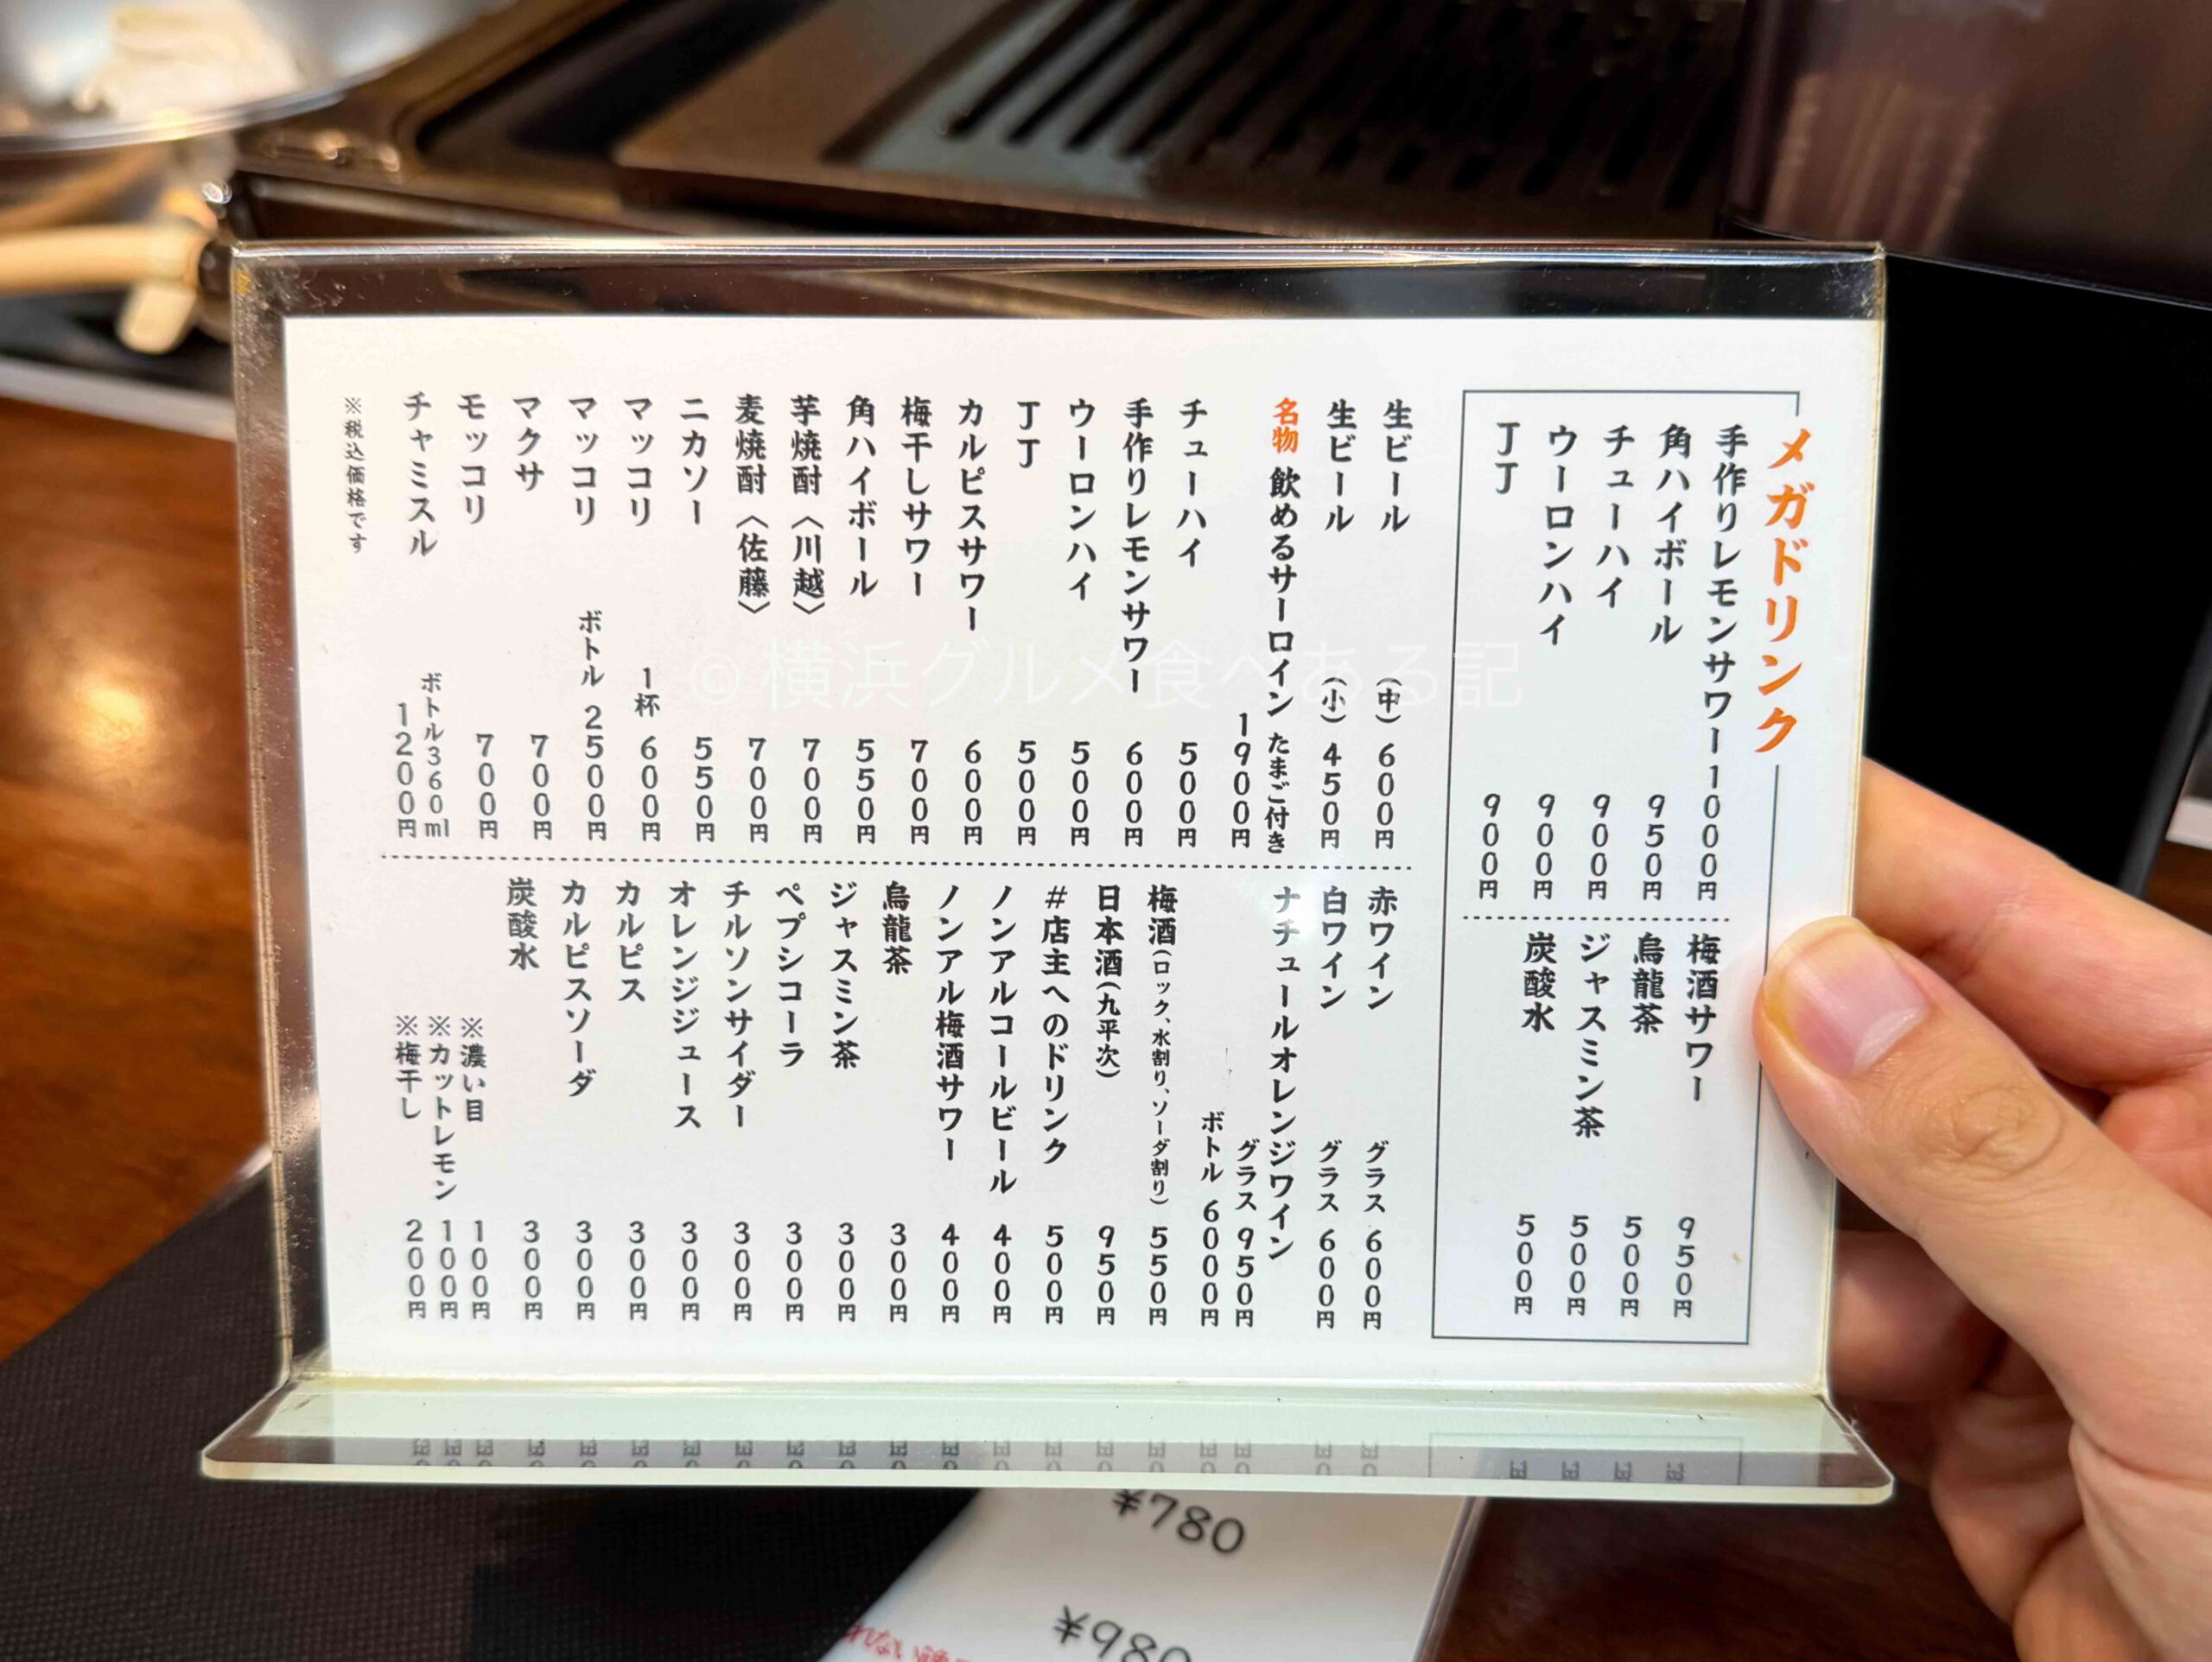 メガドリンク
手作りレモンサワー 1000円
角ハイボール 950円
チューハイ 900円
ウーロンハイ 900円
JJ 900円
梅酒サワー 950円
烏龍茶 500円
ジャスミン茶 500円
炭酸水 500円
生ビール (中) 600円
生ビール (小) 450円
名物 飲めるサーロイン たまご付き
1900円
チューハイ 500円
手作りレモンサワー 600円
ウーロンハイ 500円
JJ 500円
カルピスサワー 600円
梅干しサワー 700円
角ハイボール 550円
芋焼酎〈川越〉 700円
麦焼酎〈佐藤〉 700円
ニカソー 550円
マッコリ 1杯 600円
マッコリ ボトル 2500円
マクサ 700円
モッコリ 700円
チャミスル ボトル360ml
1200円
※税込価格です
赤ワイン グラス 600円
白ワイン グラス 600円
ナチュールオレンジワイン
グラス 950円
ボトル 6000円
梅酒(ロック、水割り、ソーダ割り) 550円
日本酒(九平次) 950円
#店主へのドリンク 500円
ノンアルコールビール 400円
ノンアル梅酒サワー 400円
烏龍茶 300円
ジャスミン茶 300円
ペプシコーラ 300円
チルソンサイダー 300円
オレンジジュース 300円
カルピス 300円
カルピスソーダ 300円
炭酸水 300円
※濃い目 100円
※カットレモン 100円
※梅干し 200円
© 横浜グルメ食べある記
¥780
¥980